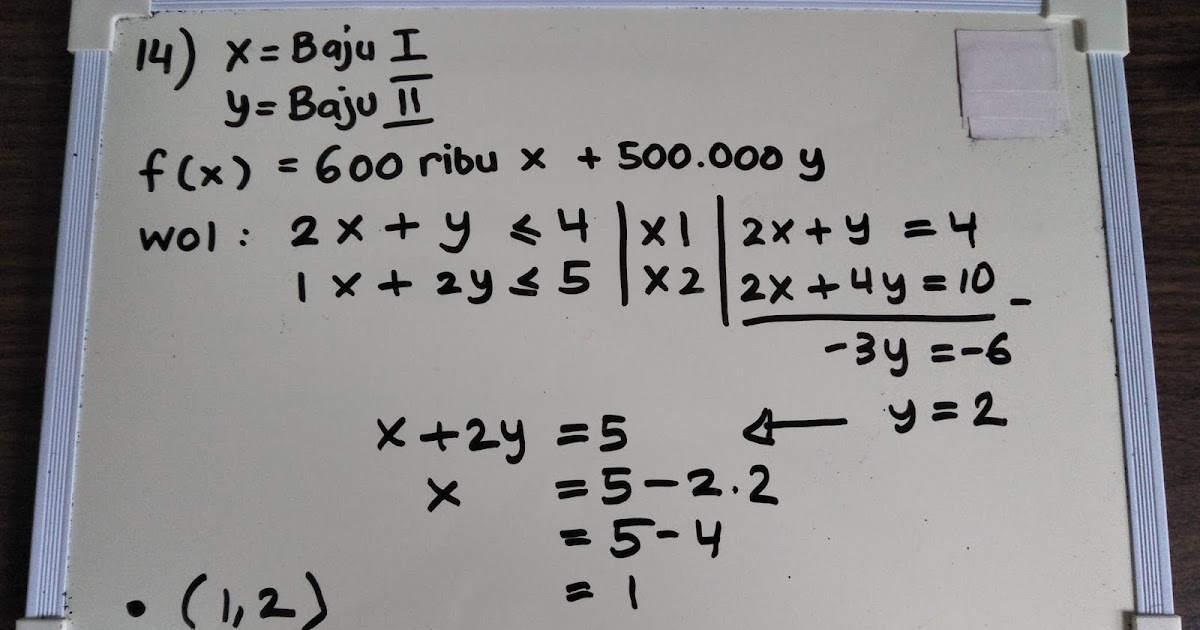 14) x = Baju I
y = Baju II
f(x) = 600 ribu x + 500.000 y
wol : 2x + y ≤ 4 | x1 | 2x + y = 4
1x + 2y ≤ 5 | x2 | 2x + 4y = 10 -
-3y = -6
y = 2
x + 2y = 5 ←
x = 5 - 2.2
= 5 - 4
= 1
• (1,2)